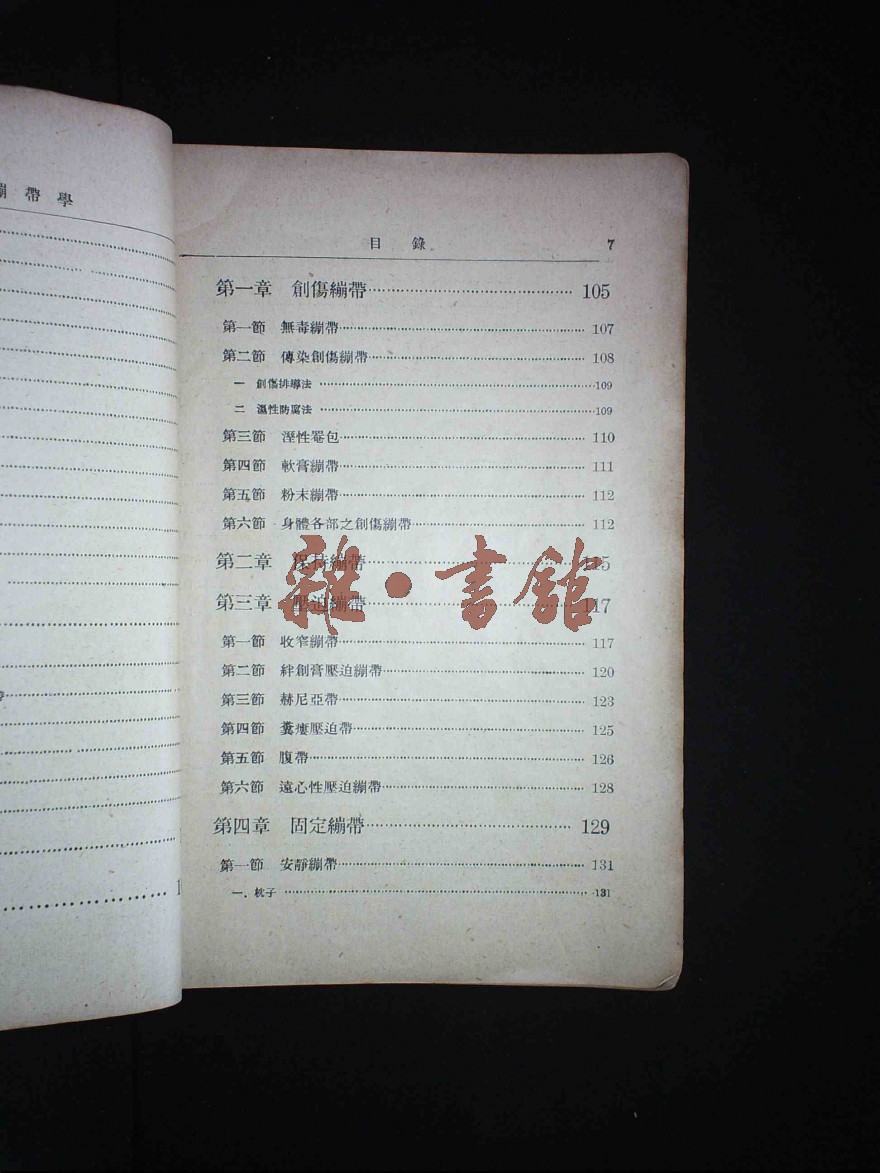 繃帶學
目錄 7
第一章 創傷繃帶 105
第一節 無毒繃帶 107
第二節 傳染創傷繃帶 108
一 創傷排導法 109
二 濕性防腐法 109
第三節 溼性罨包 110
第四節 軟膏繃帶 111
第五節 粉末繃帶 112
第六節 身體各部之創傷繃帶 112
第二章 保持繃帶 115
第三章 壓迫繃帶 117
雜·書館
第一節 收窄繃帶 117
第二節 絆創膏壓迫繃帶 120
第三節 赫尼亞帶 123
第四節 糞瘻壓迫帶 125
第五節 腹帶 126
第六節 遠心性壓迫繃帶 128
第四章 固定繃帶 129
第一節 安靜繃帶 131
一. 枕子 131